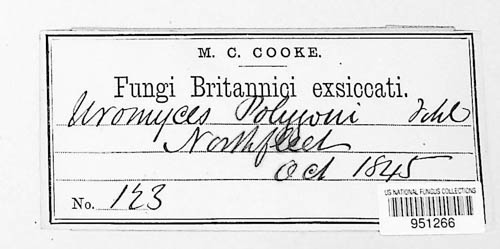 M. C. COOKE.
Fungi Britannici exsiccati.
Uromyces Polygoni Fckl
Northfleet
Oct 1845
No. 123
US NATIONAL FUNGUS COLLECTIONS
951266